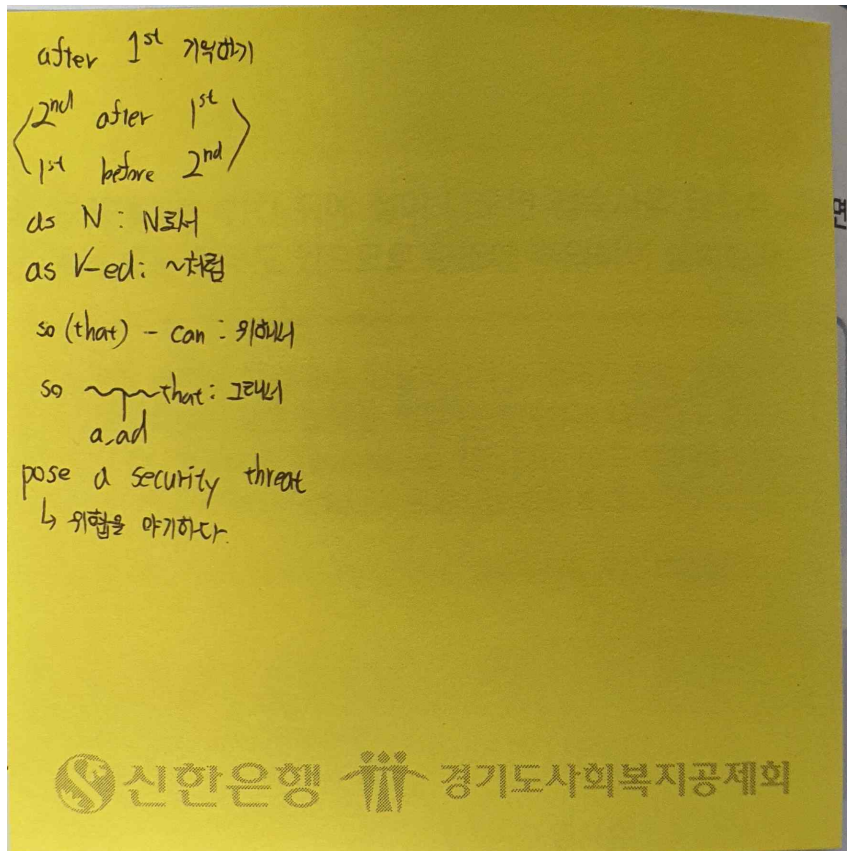 after 1st 기억하기
2nd after 1st
1st before 2nd
as N : N로서
as V-ed : ~처럼
so (that) - can : 위해서
so ~~that : 그래서
a, ad
pose a security threat
↳ 위협을 야기하다.
면
신한은행 경기도사회복지공제회